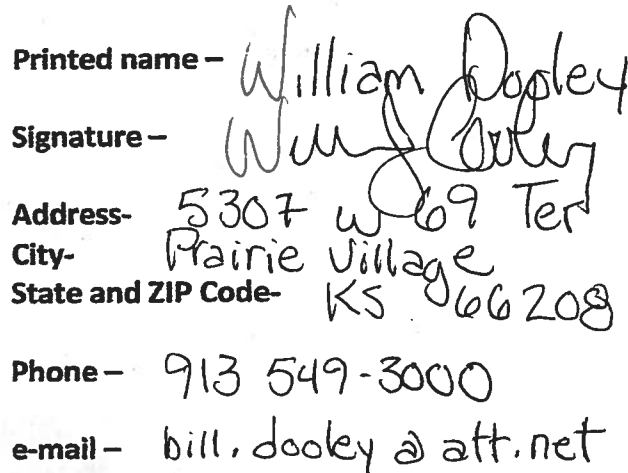 Printed name – William Dooley
Signature –
Address- 5307 W 69 Ter
City- Prairie Village
State and ZIP Code- KS 66208
Phone – 913 549-3000
e-mail – bill.dooley@att.net